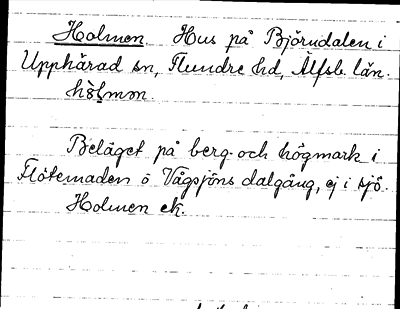 Holmen. Hus på Björndalen i
Upphärad sn, Flundre hd, Älfsb. län.
hòlmən.
Beläget på berg- och högmark i
Flötemaden ö Vågsjöns dalgång, ej i sjö.
Holmen ek.